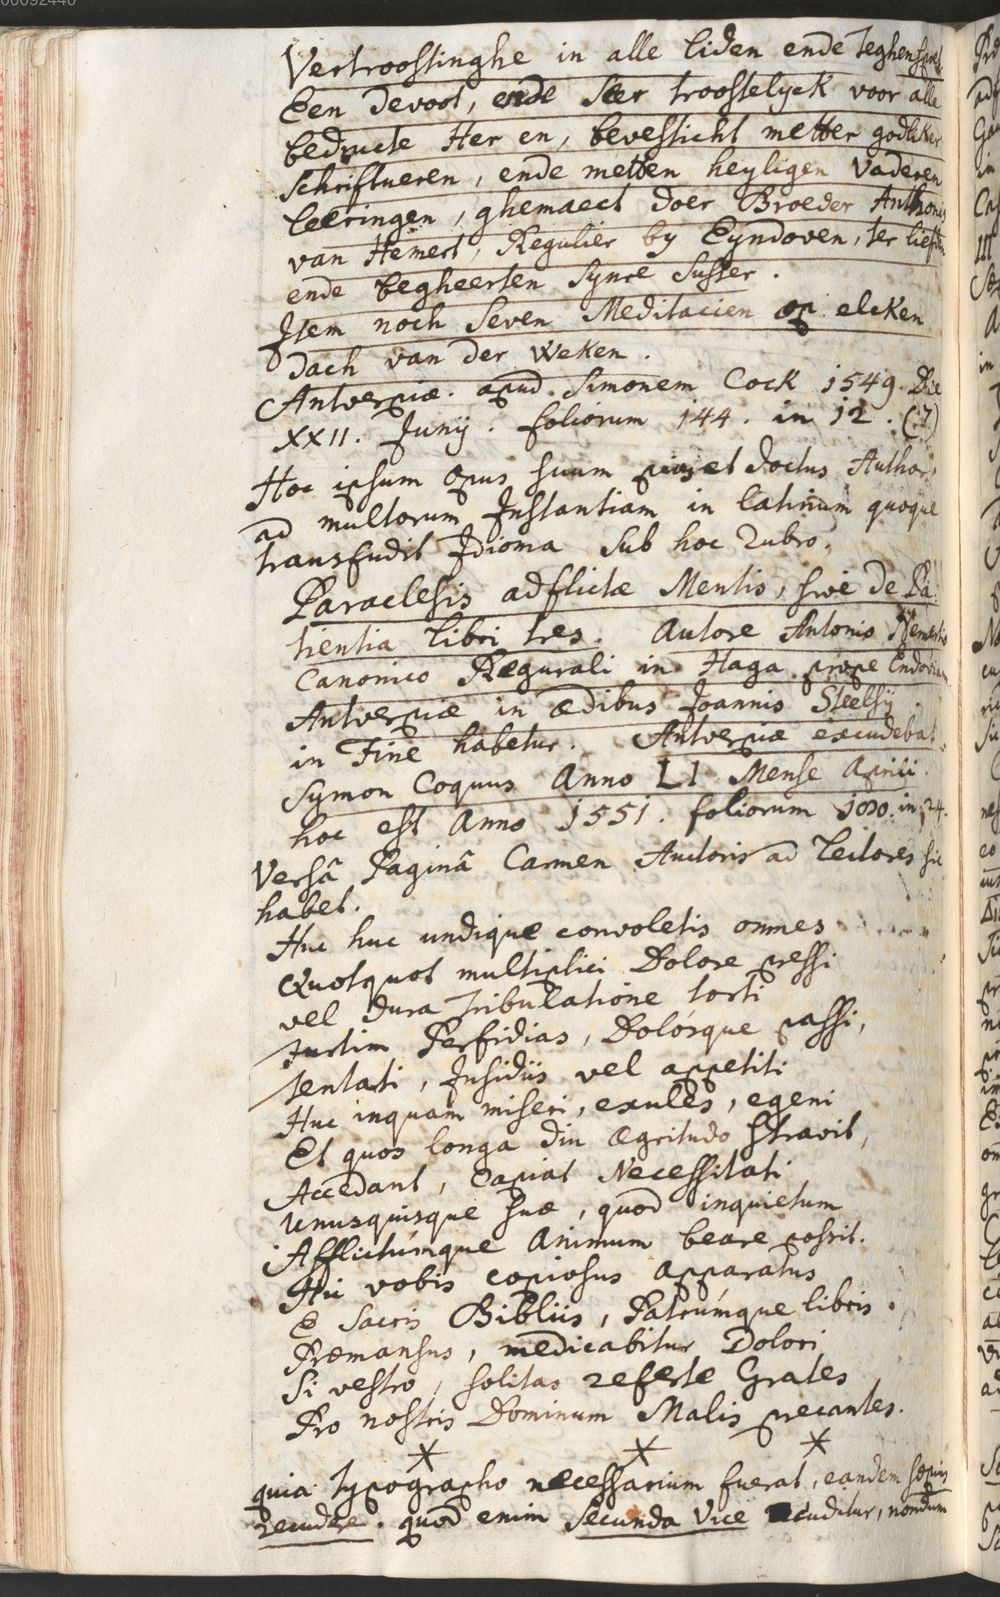 00092440
Vertroostinghe in alle liden ende teghenspoet
Een devoot, ende seer troostelyck voor alle
bedructe Her en, bevesticht metter godliker
schriftueren, ende metten heyligen Vaderen
leeringen, ghemaect doer Broeder Anthonis
van Hemert, Regulier by Eyndoven, ter liefden
ende begheerten synre suster.
Item noch seven Meditacien op elcken
dach van der weken.
Antverpiæ. apud. Simonem Cock 1549. Die
XXII. Junij. foliorum 144. in 12. (7)
Hoc ipsum opus suum pius et doctus Author
ad multorum Instantiam in latinum quoque
transfudit Idioma sub hoc Rubro.
Paraclesis adflictæ Mentis, sive de Pa:
tientia libri tres. Autore Antonio Hemertio
Canonico Regurali in Haga prope Endoviam
Antverpiæ in ædibus Joannis Steelsij.
in Fine habetur. Antverpiæ excudebat
Symon Coquus Anno LI Mense Aprili.
hoc est Anno 1551. foliorum in 24.
Versâ Paginâ Carmen Auctoris ad Lectores sic
habet.
Huc huc undique convoletis omnes
Quotquot multiplici Dolore pressi
vel dura tribulatione torti
furtim Perfidias, Dolósque passi,
tentati, Insidiis vel appetiti
Huc inquam miseri, exules, egeni
Et quos longa diu Ægritudo stravit,
Accedant, capiat Necessitati
Unusquisque suæ, quod inquietum
Afflictúmque Animum beare possit.
Hic vobis copiosus Apparatus
E Sacris Bibliis, Patrúmque libris.
Præmansus, medicabitur Dolori
Si vestro, solitas referte Grates
Pro nostris Dominum Malis precantes.
* * *
quia typographo necessarium fuerat, eandem sæpius
recudere. quod enim secunda Vice recuditur, nondum